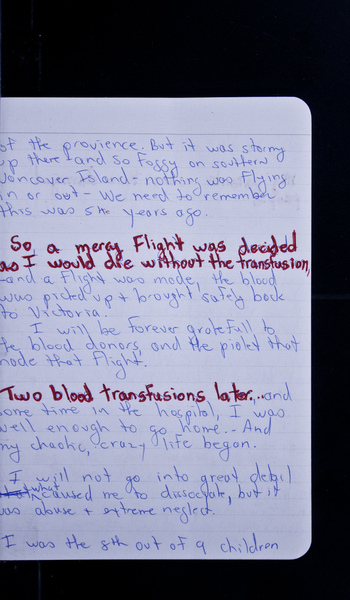 of the provience. But it was stormy
up there and so foggy on southern
Vancouver Island - nothing was flying
in or out - We need to remember
this was 54 years ago.
So a mercy Flight was decided
as I would die without the transfusion,
-and a Flight was made, the blood
was picked up + brought safely back
to Victoria.
I will be forever gratefull to
the blood donors, and the pielot that
made that flight.
Two blood transfusions later... and
some time in the hospital, I was
well enough to go home. - And
my chaotic, crazy life began.
I will not go into great detail
what
caused me to dissociate, but it
was abuse + extreme neglect.
I was the 8th out of 9 children